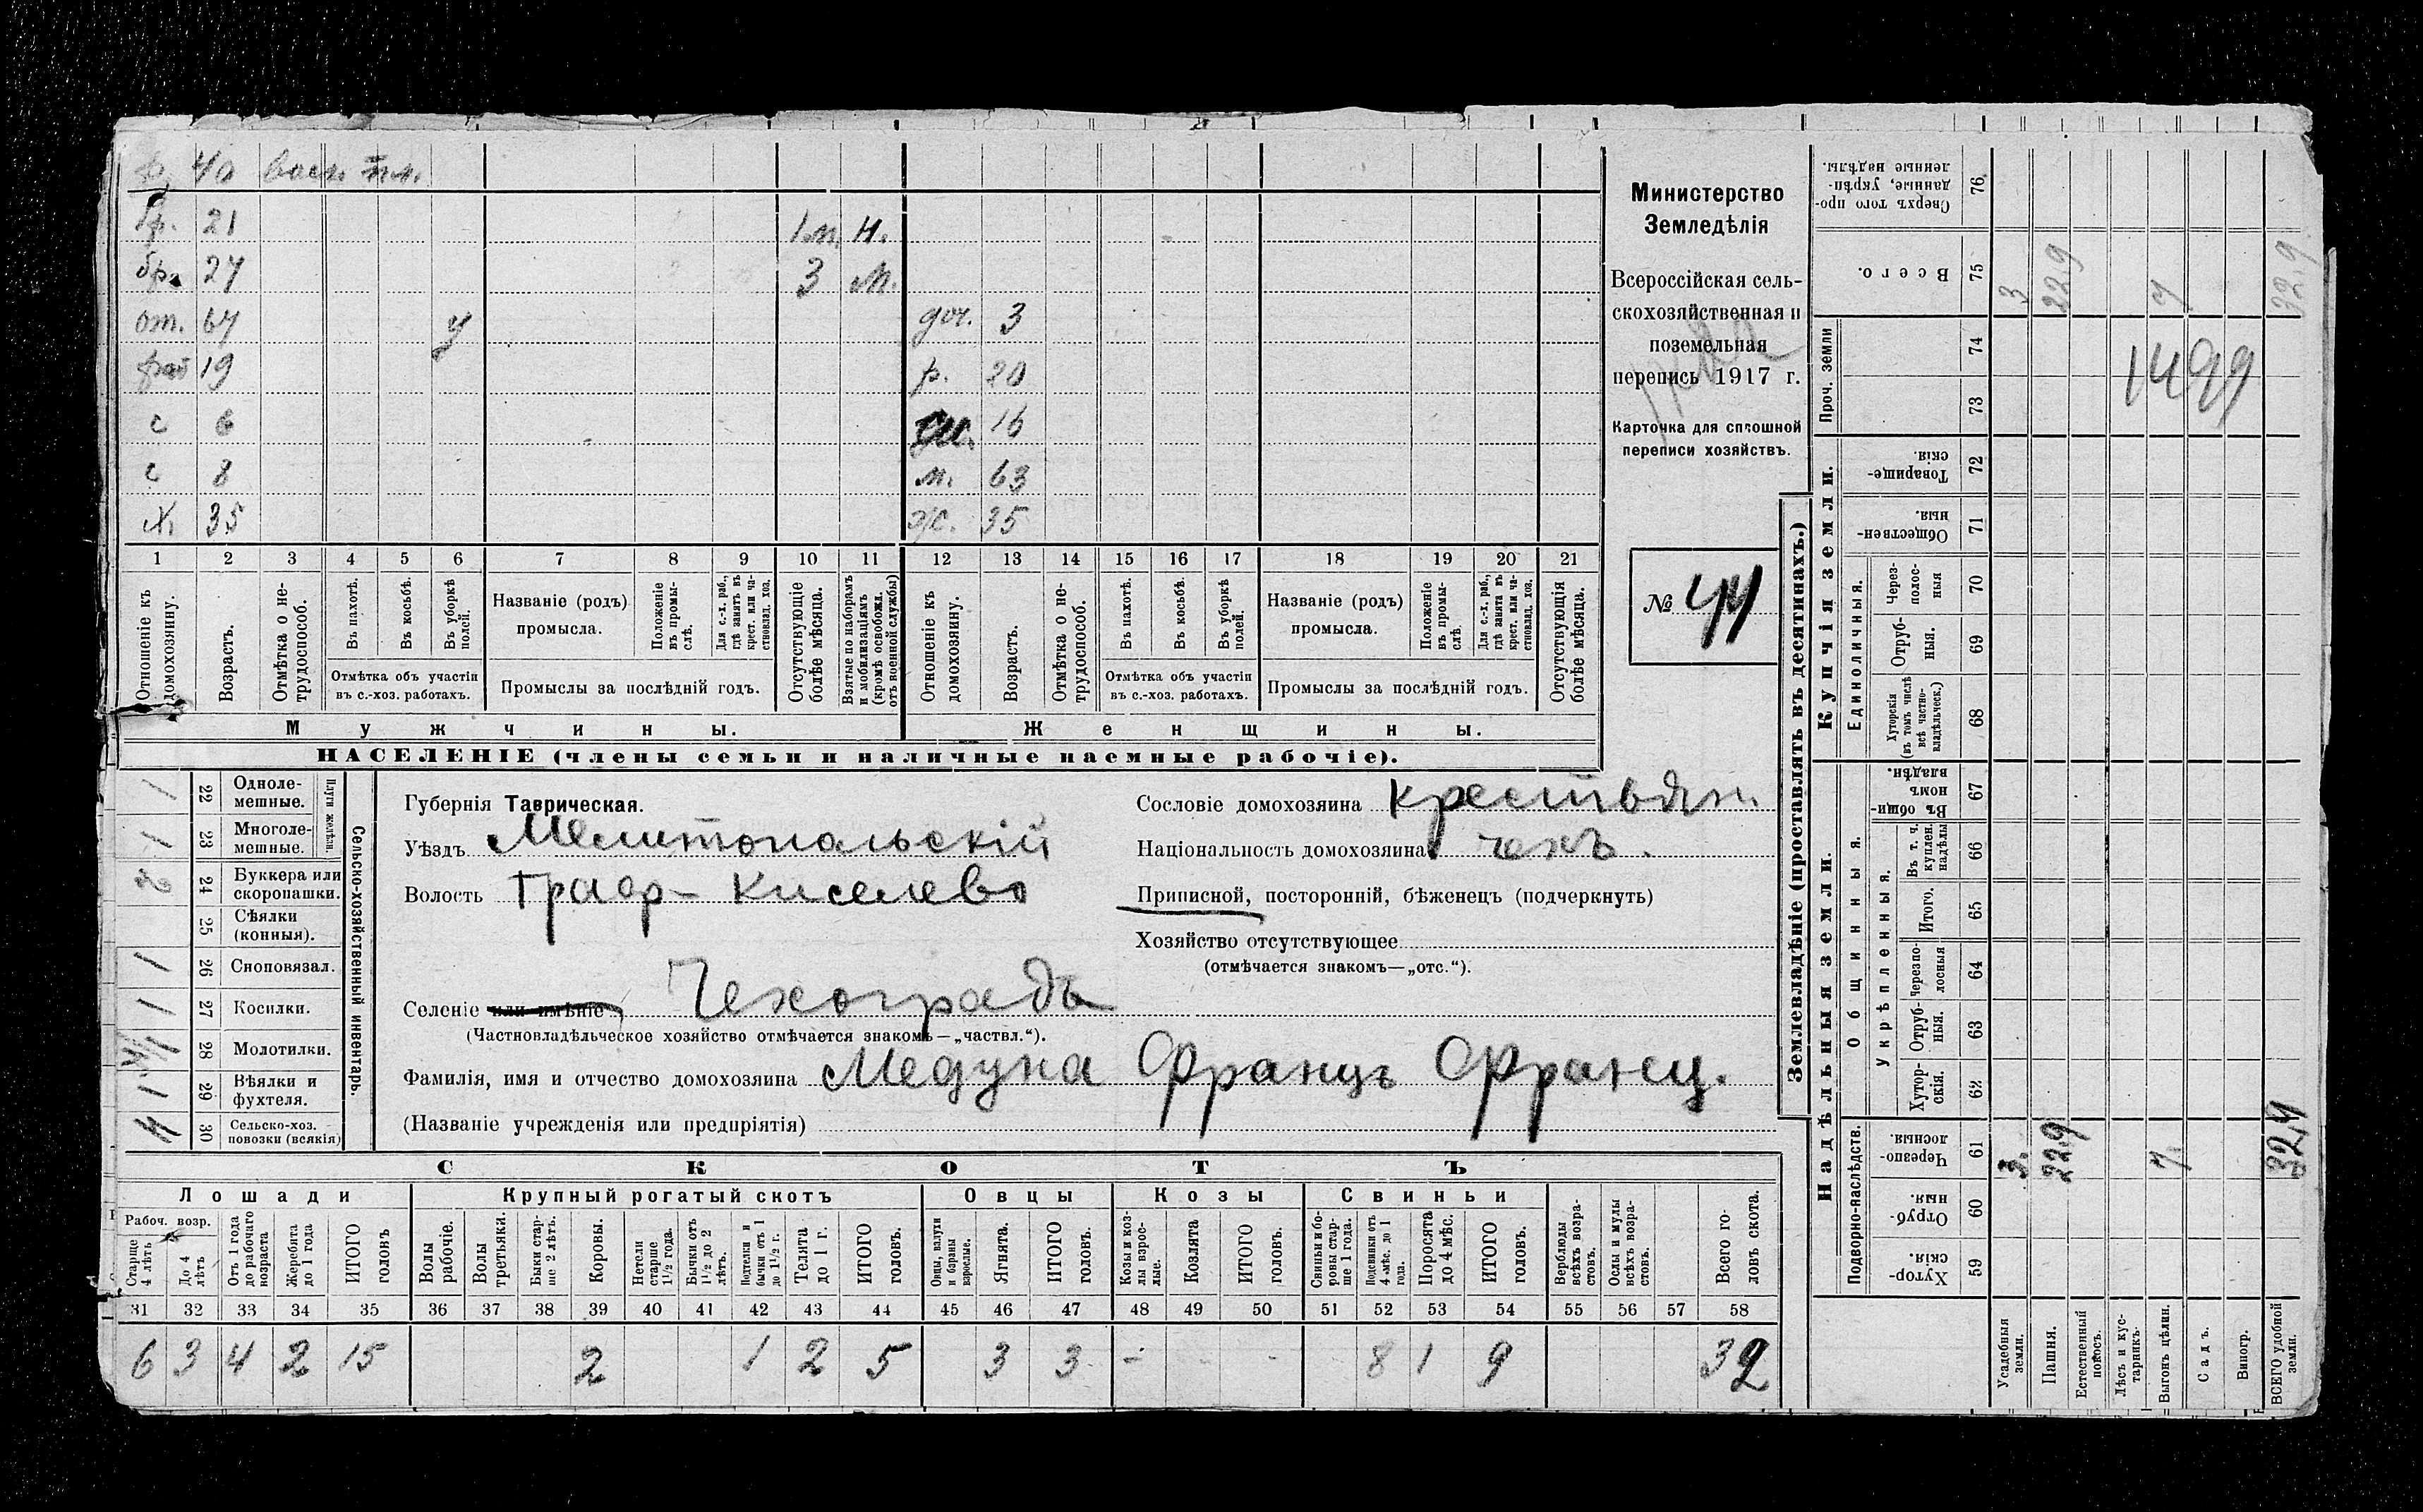 р. 40 воен. пл.
бр. 21 1 м. н.
бр. 27 3 м.
от. 67 у доч. 3
раб 19 р. 20
с 6 16
с 8 м. 63
х. 35 ж. 35
1 2 3 4 5 6 7 8 9 10 11 12 13 14 15 16 17 18 19 20 21
Отношеніе къ домохозяину.
Возрастъ.
Отмѣтка о не-трудоспособ.
Въ пахотѣ.
Въ косьбѣ.
Въ уборкѣ полей.
Отмѣтка объ участіи въ с.-хоз. работахъ.
Названіе (родъ) промысла.
Положеніе въ промы-слѣ.
Для с.-х. раб., гдѣ занятъ въ крест. или ча-стновлад. хоз.
Промыслы за послѣдній годъ.
Отсутствующіе болѣе мѣсяца.
Взятые по наборамъ и мобилизаціямъ (кромѣ освобожд. отъ военной службы)
Отношеніе къ домохозяину.
Возрастъ.
Отмѣтка о не-трудоспособ.
Въ пахотѣ.
Въ косьбѣ.
Въ уборкѣ полей.
Отмѣтка объ участіи въ с.-хоз. работахъ.
Названіе (родъ) промысла.
Положеніе въ промы-слѣ.
Для с.-х. раб., гдѣ занята въ крест. или ча-стновлад. хоз.
Промыслы за послѣдній годъ.
Отсутствующія болѣе мѣсяца.
Мужчины. Женщины.
НАСЕЛЕНІЕ (члены семьи и наличные наемные рабочіе).
Министерство
Земледѣлія
Всероссійская сель-
скохозяйственная и
поземельная
перепись 1917 г.
Карточка для сплошной
переписи хозяйствъ.
№ 44
Сельско-хозяйственный инвентарь.
Плуги желѣзн.
1 22 Одноле-мешные.
1 23 Многоле-мешные.
2 24 Буккера или скоропашки.
25 Сѣялки (конныя).
1 26 Сноповязал.
1 27 Косилки.
28 Молотилки.
1 29 Вѣялки и фухтеля.
4 30 Сельско-хоз. повозки (всякія)
Губернія Таврическая.
Уѣздъ Мелитопольскій
Волость Граф-Киселево
Селеніе или имѣніе Чехоградъ
(Частновладѣльческое хозяйство отмѣчается знакомъ—„частвл.“).
Фамилія, имя и отчество домохозяина Медуна Францъ Франц.
(Названіе учрежденія или предпріятія)
Сословіе домохозяина крестьян.
Національность домохозяина чехъ.
Приписной, посторонній, бѣженецъ (подчеркнуть)
Хозяйство отсутствующее
(отмѣчается знакомъ—„отс.“).
СКОТЪ
Лошади Крупный рогатый скотъ Овцы Козы Свиньи
Рабоч. возр.
Старше 4 лѣтъ
До 4 лѣтъ
Отъ 1 года до рабочаго возраста
Жеребята до 1 года
ИТОГО головъ
Волы рабочіе.
Волы третьяки.
Быки стар-ше 2 лѣтъ.
Коровы.
Нетели старше 1½ года.
Бычки отъ 1½ до 2 лѣтъ.
Подтелки и бычки отъ 1 до 1½ г.
Телята до 1 г.
ИТОГО головъ.
Овцы, валухи и бараны взрослые.
Ягнята.
ИТОГО головъ.
Козы и коз-лы взрос-лые.
Козлята
ИТОГО головъ.
Свиньи и бо-ровы стар-ше 1 года.
Подсвинки отъ 4 мѣс. до 1 года.
Поросята до 4 мѣс.
ИТОГО головъ.
Верблюды всѣхъ возра-стовъ.
Ослы и мулы всѣхъ возра-стовъ.
Всего го-ловъ скота.
31 32 33 34 35 36 37 38 39 40 41 42 43 44 45 46 47 48 49 50 51 52 53 54 55 56 57 58
6 3 4 2 15 2 1 2 5 3 3 - - - 8 1 9 32
Землевладѣніе (проставлять въ десятинахъ.)
Сверхъ того про-данные, укрѣп-ленные надѣлы. 76
Всего. 75 3 22,9 7 32,9
Проч. земли 74 73
1499
Купчія земли.
Товарище-скія. 72
Обществен-ныя. 71
Единоличныя.
Через-полос-ныя 70
Отруб-ныя. 69
Хуторскія (въ томъ числѣ всѣ частно-владѣльческ.) 68
Надѣльныя земли.
Общинныя.
Въ общин-номъ владѣн. 67
Укрѣпленныя.
Въ т. ч. куплен. надѣлы 66
Итого. 65
Черезпо-лосныя 64
Отруб-ныя. 63
Хутор-скія. 62
Подворно-наслѣдств.
Черезпо-лосныя. 61 3. 22,9 7. 32,9
Отруб-ныя. 60
Хутор-скія. 59
Усадебныя земли.
Пашня.
Естественный покосъ.
Лѣсъ и кус-тарникъ.
Выгонъ цѣлин.
Садъ.
Виногр.
ВСЕГО удобной земли.